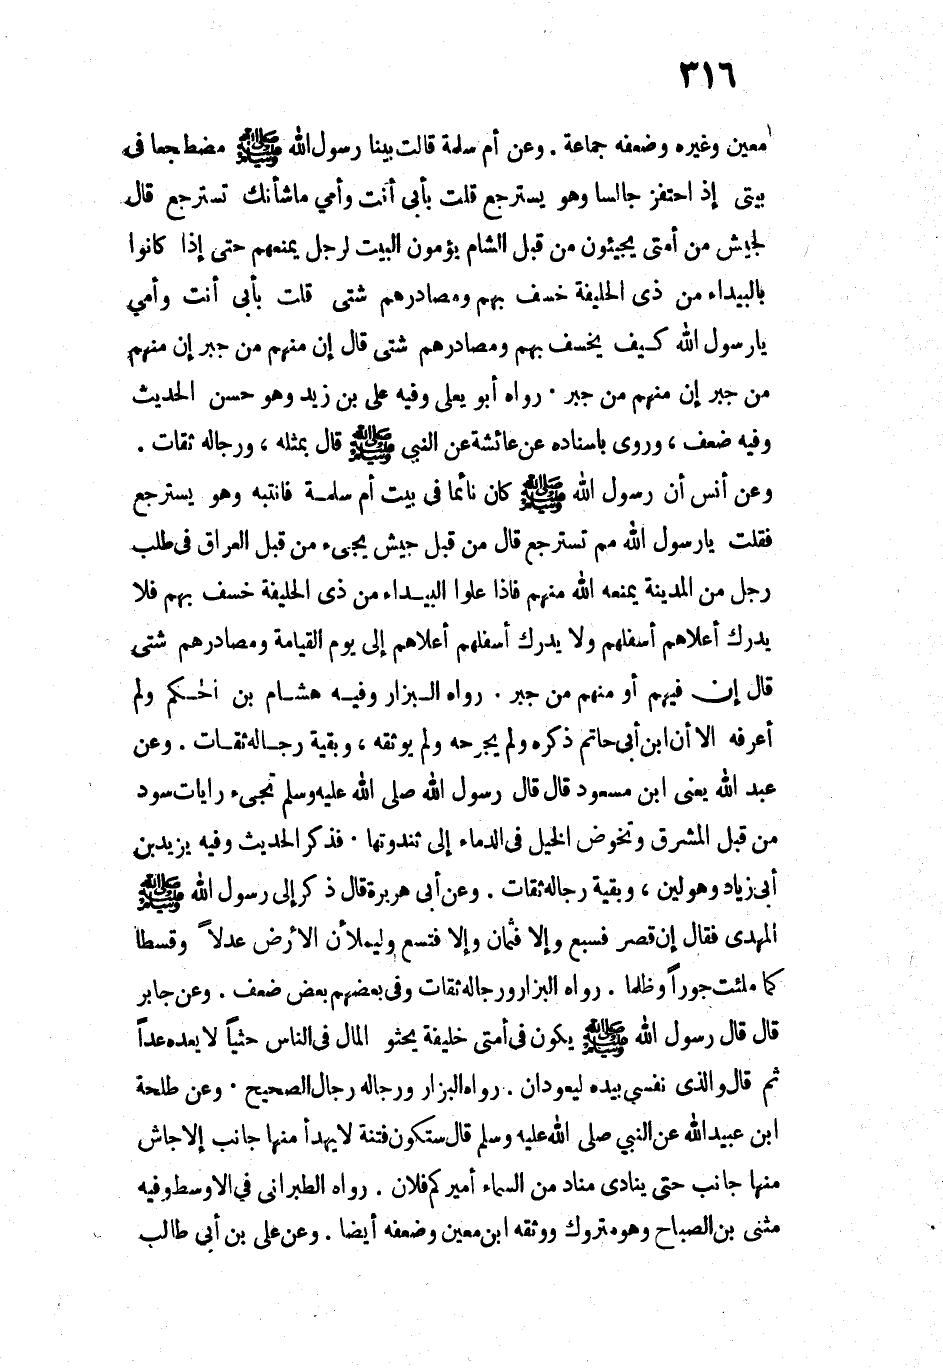 ٣١٦
معين وغيره وضعفه جماعة . وعن أم سلمة قالت بينا رسول الله ﷺ مضطجعا فى
بيتى إذ احتفز جالسا وهو يسترجع قلت بأبى أنت وأمي ماشأنك تسترجع قال
لجيش من أمتى يجيئون من قبل الشام يؤمون البيت لرجل يمنعهم حتى إذا كانوا
بالبيداء من ذى الحليفة خسف بهم ومصادرهم شتى قلت بأبى أنت وأمي
يارسول الله كيف يخسف بهم ومصادرهم شتى قال إن منهم من جبر إن منهم
من جبر إن منهم من جبر . رواه أبو يعلى وفيه على بن زيد وهو حسن الحديث
وفيه ضعف ، وروى باسناده عن عائشة عن النبي ﷺ قال بمثله ، ورجاله ثقات .
وعن أنس أن رسول الله ﷺ كان نائما فى بيت أم سلمة فانتبه وهو يسترجع
فقلت يارسول الله مم تسترجع قال من قبل جيش يجىء من قبل العراق فى طلب
رجل من المدينة يمنعه الله منهم فاذا علوا البيداء من ذى الحليفة خسف بهم فلا
يدرك أعلاهم أسفلهم ولا يدرك أسفلهم أعلاهم إلى يوم القيامة ومصادرهم شتى
قال إن فيهم أو منهم من جبر . رواه البزار وفيه هشام بن الحكم ولم
أعرفه الا أن ابن أبى حاتم ذكره ولم يجرحه ولم يوثقه ، وبقية رجاله ثقات . وعن
عبد الله يعنى ابن مسعود قال قال رسول الله صلى الله عليه وسلم تجىء رايات سود
من قبل المشرق وتخوض الخيل فى الدماء إلى ثندوتها . فذكر الحديث وفيه يزيد بن
أبى زياد وهو لين ، وبقية رجاله ثقات . وعن أبى هريرة قال ذكر إلى رسول الله ﷺ
المهدى فقال إن قصر فسبع وإلا فثمان وإلا فتسع وليملأن الأرض عدلاً وقسطا
كما ملئت جوراً وظلما . رواه البزار ورجاله ثقات وفى بعضهم بعض ضعف . وعن جابر
قال قال رسول الله ﷺ يكون فى أمتى خليفة يحثو المال فى الناس حثياً لا يعده عداً
ثم قال والذى نفسي بيده ليعودان . رواه البزار ورجاله رجال الصحيح . وعن طلحة
ابن عبيد الله عن النبي صلى الله عليه وسلم قال ستكون فتنة لا يهدأ منها جانب إلا جاش
منها جانب حتى ينادى مناد من السماء أميركم فلان . رواه الطبرانى في الاوسط وفيه
مثنى بن الصباح وهو متروك ووثقه ابن معين وضعفه أيضا . وعن على بن أبي طالب